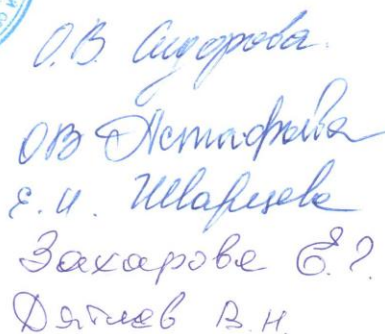 О.В. Сидорова.
ОВ Астафьева
Е.И. Шварцева
Захарова Е.
Дятлев В.Н.